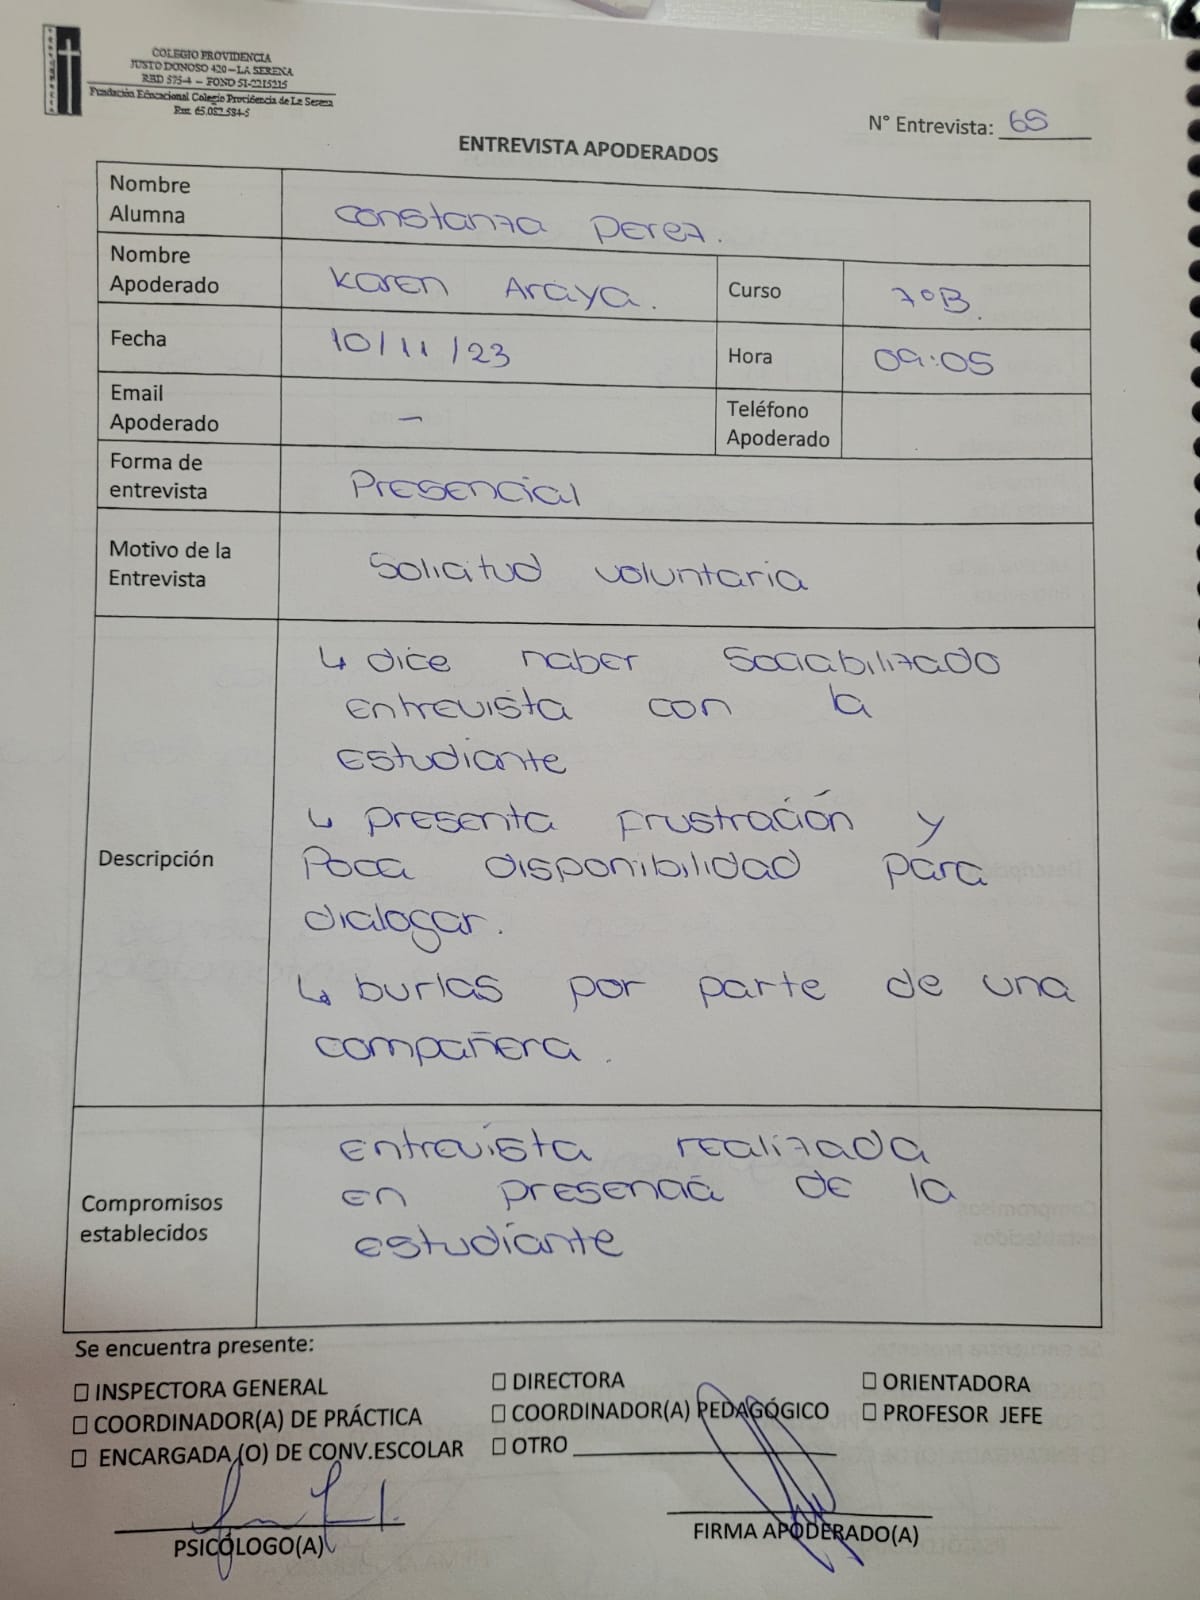 COLEGIO PROVIDENCIA
JUSTO DONOSO 420 – LA SERENA
RBD 575-4 – FONO 51-2215215
Fundación Educacional Colegio Providencia de La Serena
Rut: 65.082.584-5
N° Entrevista: 65
ENTREVISTA APODERADOS
Nombre Alumna
Constanza Perez.
Nombre Apoderado
Karen Araya.
Curso
7°B.
Fecha
10/11/23
Hora
09:05
Email Apoderado
–
Teléfono Apoderado
Forma de entrevista
Presencial
Motivo de la Entrevista
Solicitud voluntaria
Descripción
↳ dice haber sociabilizado
entrevista con la
estudiante
↳ presenta frustración y
Poca disponibilidad para
dialogar.
↳ burlas por parte de una
compañera.
Compromisos establecidos
entrevista realizada
en presencia de la
estudiante
Se encuentra presente:
☐ INSPECTORA GENERAL ☐ DIRECTORA ☐ ORIENTADORA
☐ COORDINADOR(A) DE PRÁCTICA ☐ COORDINADOR(A) PEDAGÓGICO ☐ PROFESOR JEFE
☐ ENCARGADA (O) DE CONV.ESCOLAR ☐ OTRO
PSICÓLOGO(A)
FIRMA APODERADO(A)